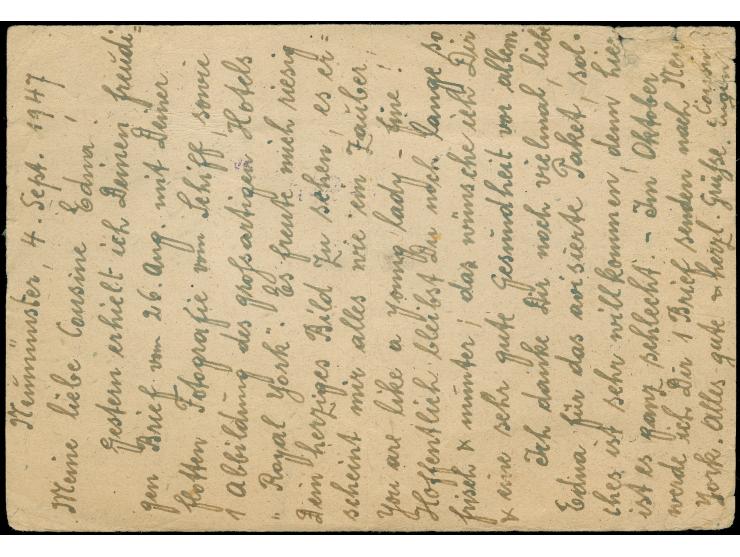 Neumünster, 4. Sept. 1947
Meine liebe Cousine Edna!
Gestern erhielt ich Deinen freudi-
gen Brief vom 26. Aug. mit Deiner
flotten Fotografie vom Schiff, sowie
1 Abbildung des großartigen Hotels
"Royal York". Es freute mich riesig
Dein herziges Bild zu sehen, es er=
scheint mir alles wie ein Zauber!
You are like a young lady - fine!
Hoffentlich bleibst Du noch lange so
frisch & munter, das wünsche ich Dir
& eine sehr gute Gesundheit vor allem
Ich danke Dir noch vielmal, liebe
Edna für das avisierte Paket, sol-
ches ist sehr willkommen, denn hier
ist es ganz schlecht. - Im Oktober
werde ich Dir 1 Brief senden nach New
York. Alles gute & herzl. Grüße Cousin